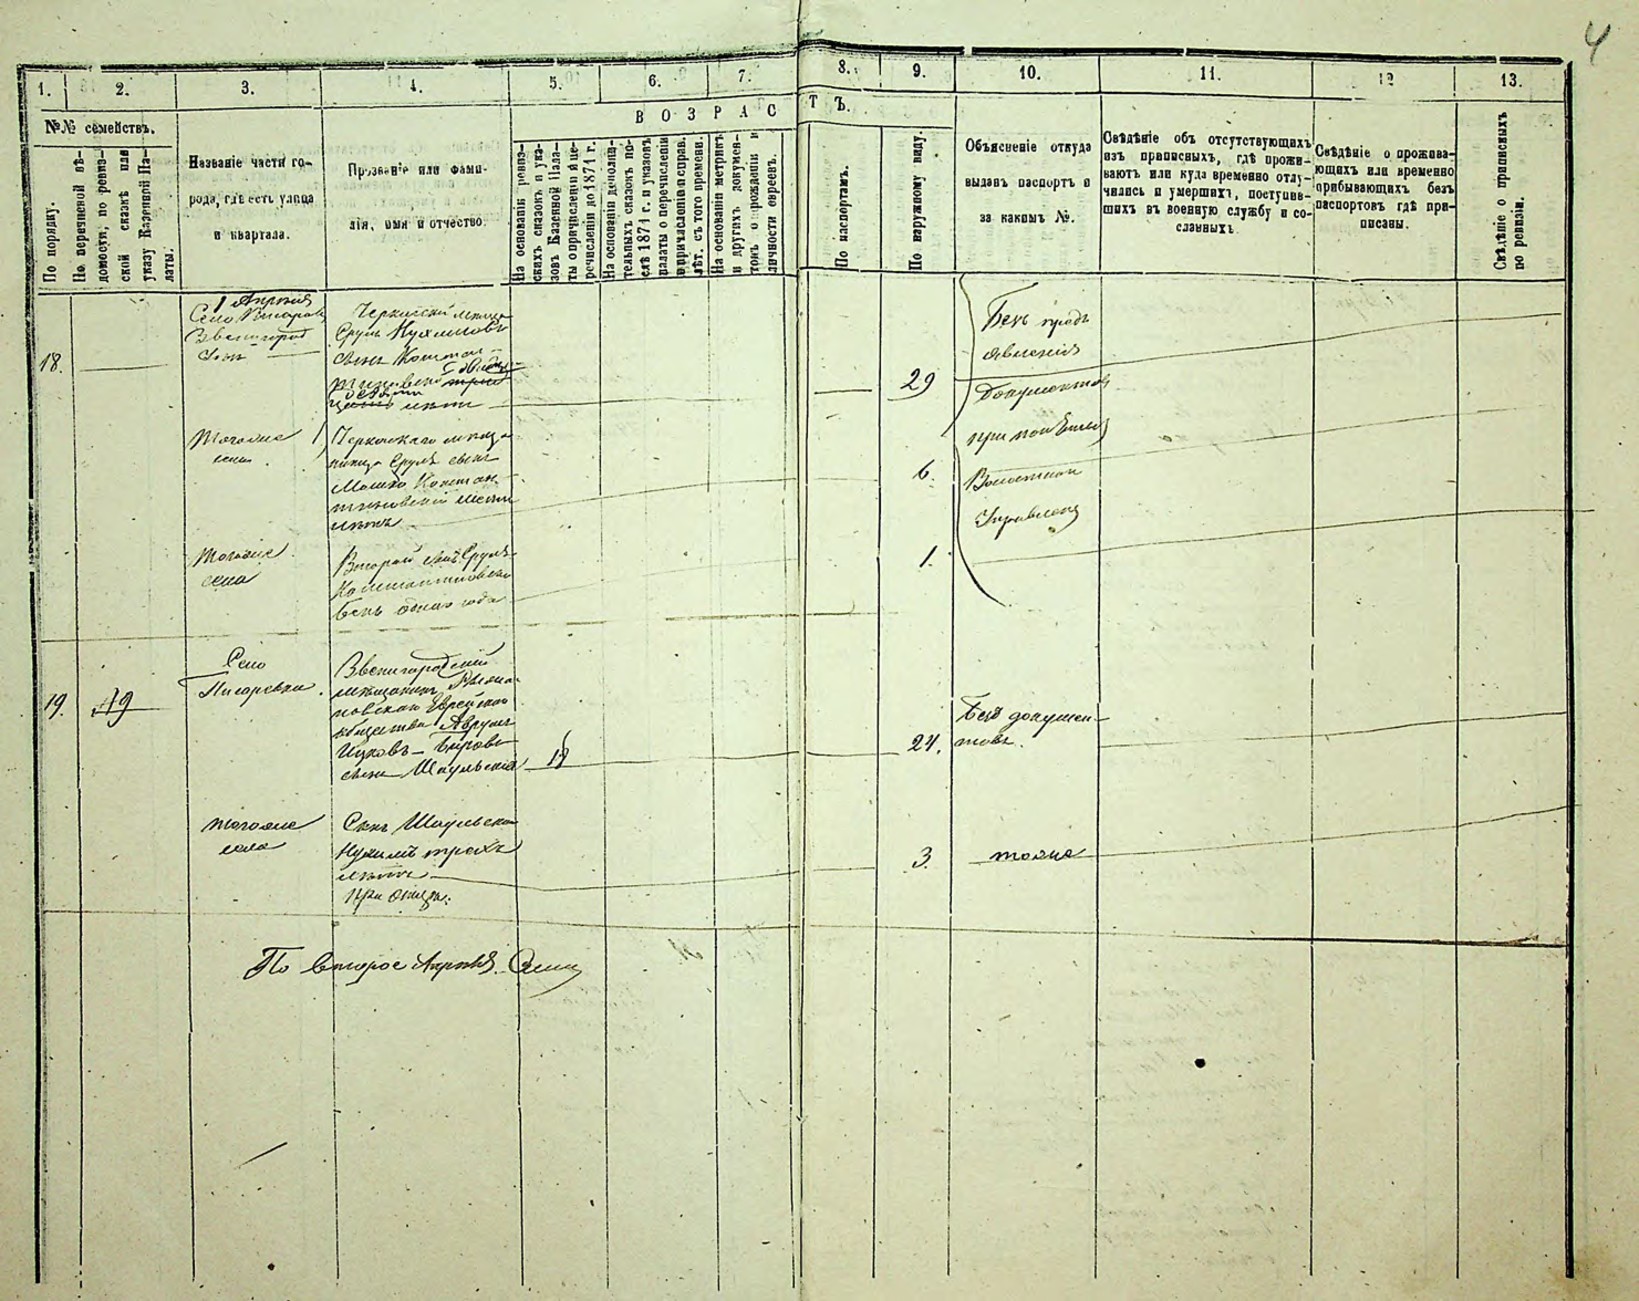 4
1. 2. 3. 4. 5. 6. 7. 8. 9. 10. 11. 12 13.
№№ семействъ.
По порядку.
По перечневой вѣ-
домости, по ревиз-
ской сказкѣ или
указу Казенной Па-
латы.
Названіе части го-
рода, гдѣ есть улица
и квартала.
Прозваніе или фами-
лія, имя и отчество.
ВОЗРАСТЪ.
На основаніи ревиз-
скихъ сказокъ и ука-
зовъ Казенной Пала-
ты о причисленіи и пе-
речисленіи до 1871 г.
На основаніи дополни-
тельныхъ сказокъ по-
слѣ 1871 г. и указовъ
палаты о перечисленіи
и причисленіи и справ.
лѣт. съ того времени.
На основаніи метрикъ
и другихъ докумен-
товъ о рожденіи и
личности евреевъ.
По паспортамъ.
По наружному виду.
Объясненіе откуда
выданъ паспортъ и
за какимъ №.
Свѣдѣніе объ отсутствующихъ
изъ приписныхъ, гдѣ прожи-
ваютъ или куда временно отлу-
чились и умершихъ, поступив-
шихъ въ военную службу и со-
сланныхъ.
Свѣдѣніе о прожива-
ющихъ или временно
прибывающихъ безъ
паспортовъ гдѣ при-
писаны.
Свѣдѣніе о приписныхъ
по ревизіи.
18.
1 Апрѣля
Село
Срулъ Нухимовъ
сынъ
лѣтъ
29
Безъ предъ
явленія
документовъ
при
Волостномъ
Правленіи
Тогоже
села
Срулъ сынъ
Мошко Констан-
тиновскій шести
лѣтъ
6.
Тогоже
села
Второй сынъ Срулъ
Константиновскаго
Бенъ одного года
1.
19. 19
Село
Писаревка.
Звенигородскій
мѣщанинъ
Еврейскаго
общества Аврумъ
Ицковъ-Берковъ
сынъ Шаульскій
19
24.
Безъ докумен-
товъ.
тогоже
села
Сынъ Шаульскаго
Нухимъ трехъ
лѣтъ
при отцѣ.
3.
тоже
По второе Апрѣля